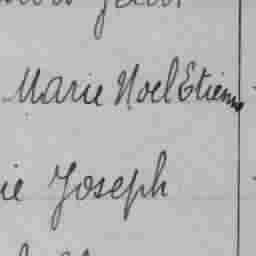 Marie Noel Etienne
ie Joseph